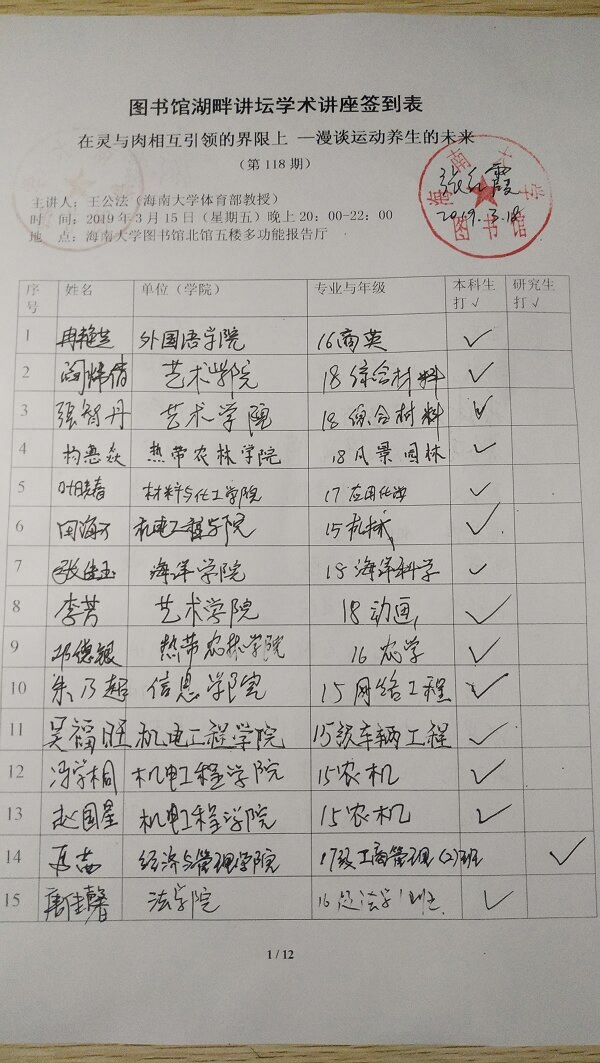 图书馆湖畔讲坛学术讲座签到表
在灵与肉相互引领的界限上 —漫谈运动养生的未来
（第 118 期）
主讲人：王公法（海南大学体育部教授）
时 间：2019 年 3 月 15 日（星期五）晚上 20：00-22：00
地 点：海南大学图书馆北馆五楼多功能报告厅
海南大学
图书馆
张红霞
2019.3.18
序号 姓名 单位（学院） 专业与年级 本科生打√ 研究生打√
1 冉艳 外国语学院 16商英 ✓
2 阎烨倩 艺术学院 18综合材料 ✓
3 张智丹 艺术学院 18综合材料 ✓
4 惠焱 热带农林学院 18风景园林 ✓
5 叶春 材料与化工学院 17应用化学 ✓
6 田海 机电工程学院 15机械 ✓
7 张玉 海洋学院 18海洋科学 ✓
8 李芳 艺术学院 18动画 ✓
9 邓德银 热带农林学院 16农学 ✓
10 朱乃超 信息学院 15网络工程 ✓
11 吴福旺 机电工程学院 15级车辆工程 ✓
12 冯学桐 机电工程学院 15农机 ✓
13 赵国星 机电工程学院 15农机 ✓
14 经济与管理学院 17级工商管理(2)班 ✓
15 唐佳馨 法学院 16级法学1班 ✓
1 / 12